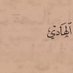 الهادي